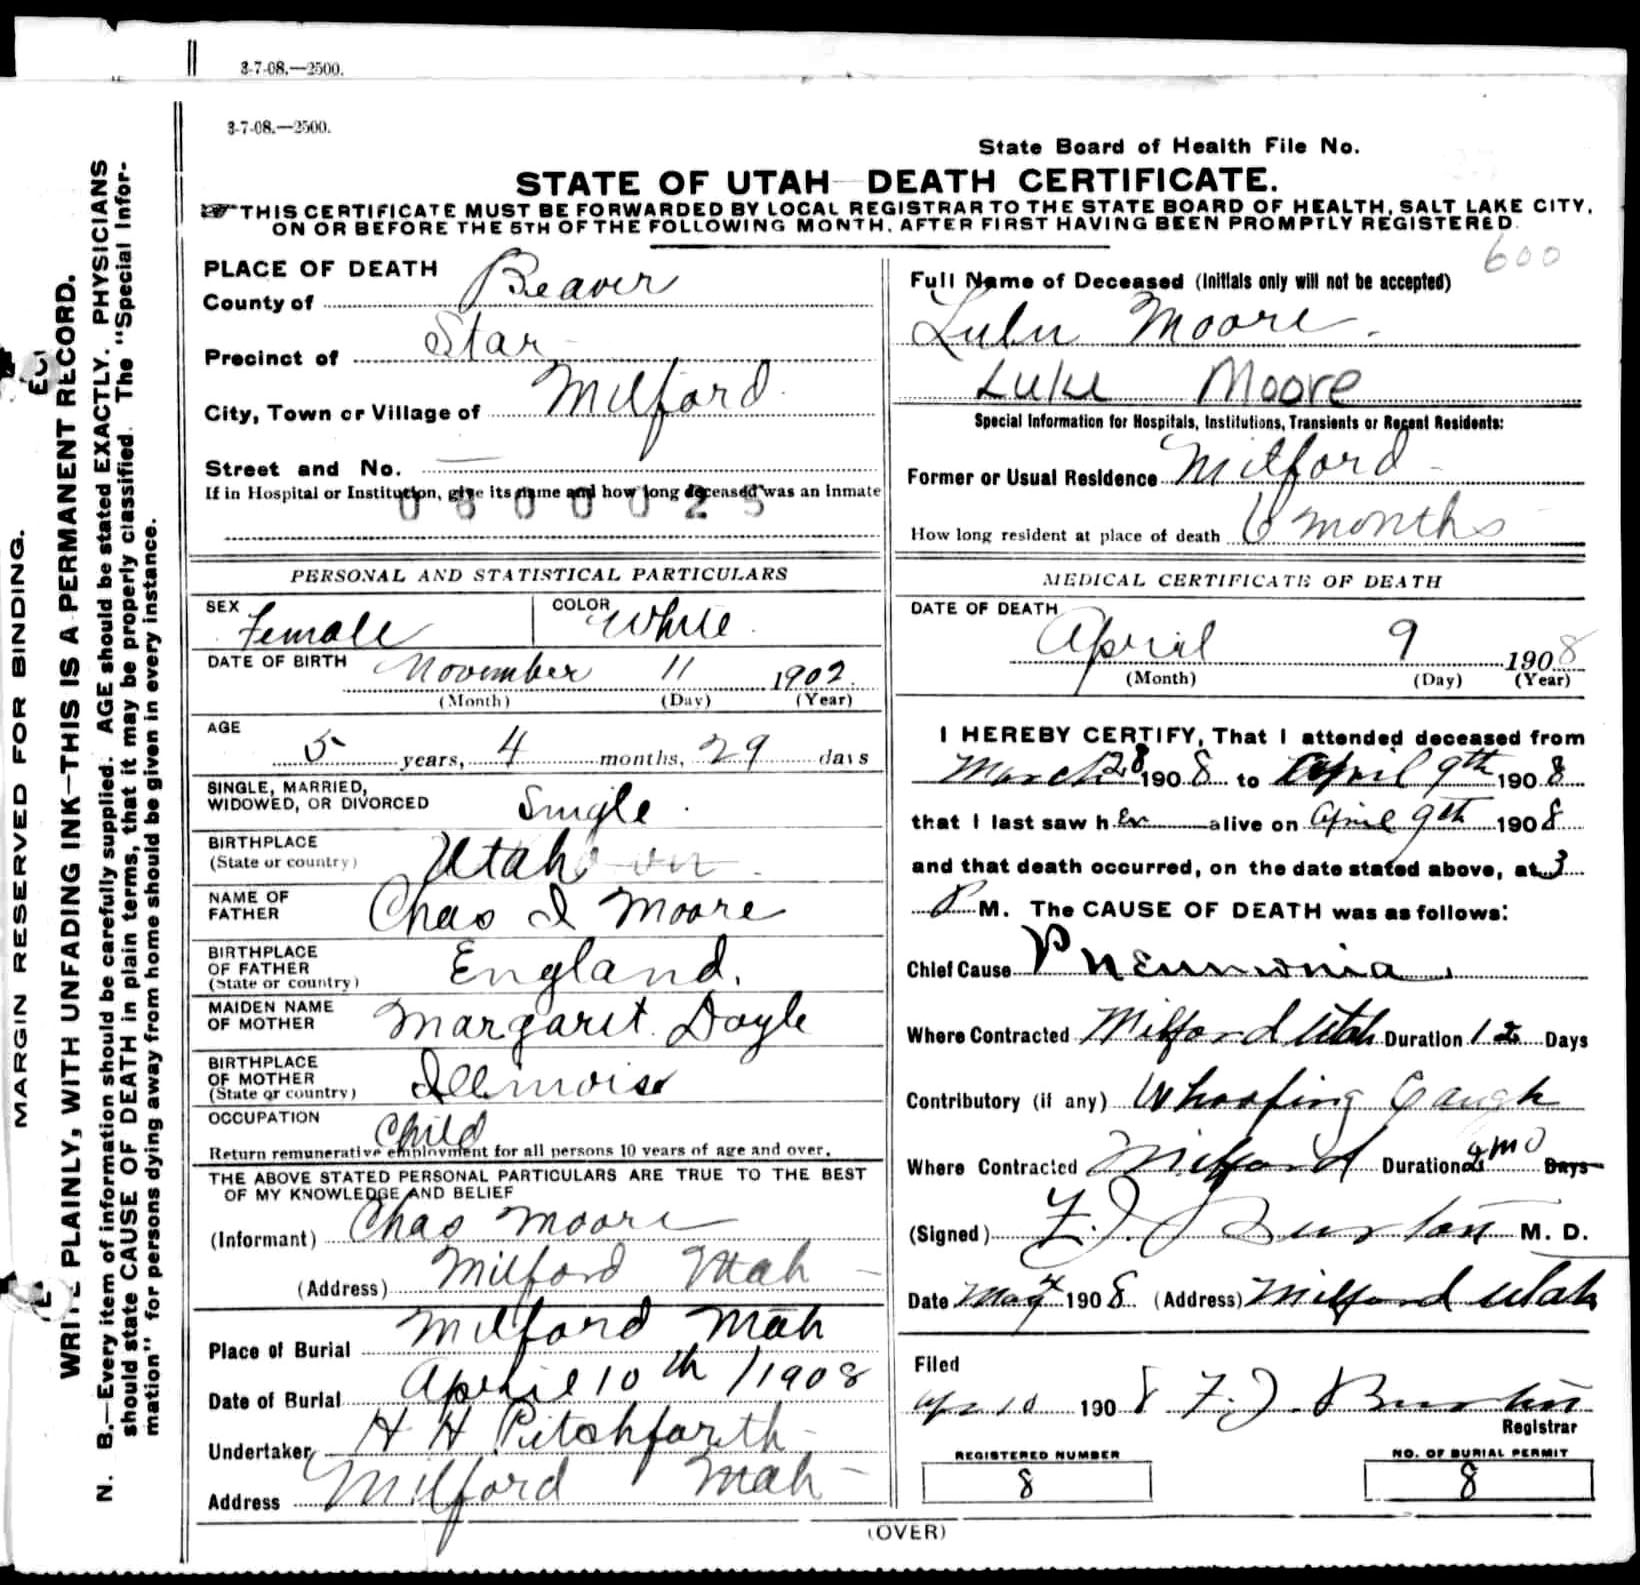 3-7-08.—2500.
3-7-08.—2500.
State Board of Health File No.
STATE OF UTAH DEATH CERTIFICATE.
THIS CERTIFICATE MUST BE FORWARDED BY LOCAL REGISTRAR TO THE STATE BOARD OF HEALTH, SALT LAKE CITY,
ON OR BEFORE THE 5TH OF THE FOLLOWING MONTH, AFTER FIRST HAVING BEEN PROMPTLY REGISTERED.
600
PLACE OF DEATH
County of Beaver
Precinct of Star
City, Town or Village of Milford
Street and No. —
If in Hospital or Institution, give its name and how long deceased was an inmate
0800025
Full Name of Deceased (Initials only will not be accepted)
Lulu Moore.
Luke Moore
Special Information for Hospitals, Institutions, Transients or Recent Residents:
Former or Usual Residence Milford
How long resident at place of death 6 months
PERSONAL AND STATISTICAL PARTICULARS
SEX Female
COLOR White.
DATE OF BIRTH November 11 1902
(Month) (Day) (Year)
AGE
5 years, 4 months, 29 days
SINGLE, MARRIED,
WIDOWED, OR DIVORCED Single.
BIRTHPLACE
(State or country) Utah
NAME OF
FATHER Chas I Moore
BIRTHPLACE
OF FATHER
(State or country) England.
MAIDEN NAME
OF MOTHER Margaret Doyle
BIRTHPLACE
OF MOTHER
(State or country) Illinois
OCCUPATION
Child
Return remunerative employment for all persons 10 years of age and over.
THE ABOVE STATED PERSONAL PARTICULARS ARE TRUE TO THE BEST
OF MY KNOWLEDGE AND BELIEF
(Informant) Chas Moore
(Address) Milford Utah
Place of Burial Milford Utah
Date of Burial April 10th / 1908
Undertaker H H Pitchforth
Address Milford Utah
MEDICAL CERTIFICATE OF DEATH
DATE OF DEATH
April 9 1908
(Month) (Day) (Year)
I HEREBY CERTIFY, That I attended deceased from
March 28 1908 to April 9th 1908
that I last saw her alive on April 9th 1908
and that death occurred, on the date stated above, at 3
P M. The CAUSE OF DEATH was as follows:
Chief Cause Pneumonia
Where Contracted Milford Utah Duration 12 Days
Contributory (if any) Whooping Cough
Where Contracted Milford Duration 2 mo Days
(Signed) F. J. Burton M. D.
Date May 1908 (Address) Milford Utah
Filed
Apr 10 1908 F. J. Burton
Registrar
REGISTERED NUMBER
8
NO. OF BURIAL PERMIT
8
(OVER)
MARGIN RESERVED FOR BINDING.
WRITE PLAINLY, WITH UNFADING INK—THIS IS A PERMANENT RECORD.
N. B.—Every item of information should be carefully supplied. AGE should be stated EXACTLY. PHYSICIANS
should state CAUSE OF DEATH in plain terms, that it may be properly classified. The "Special Infor-
mation" for persons dying away from home should be given in every instance.